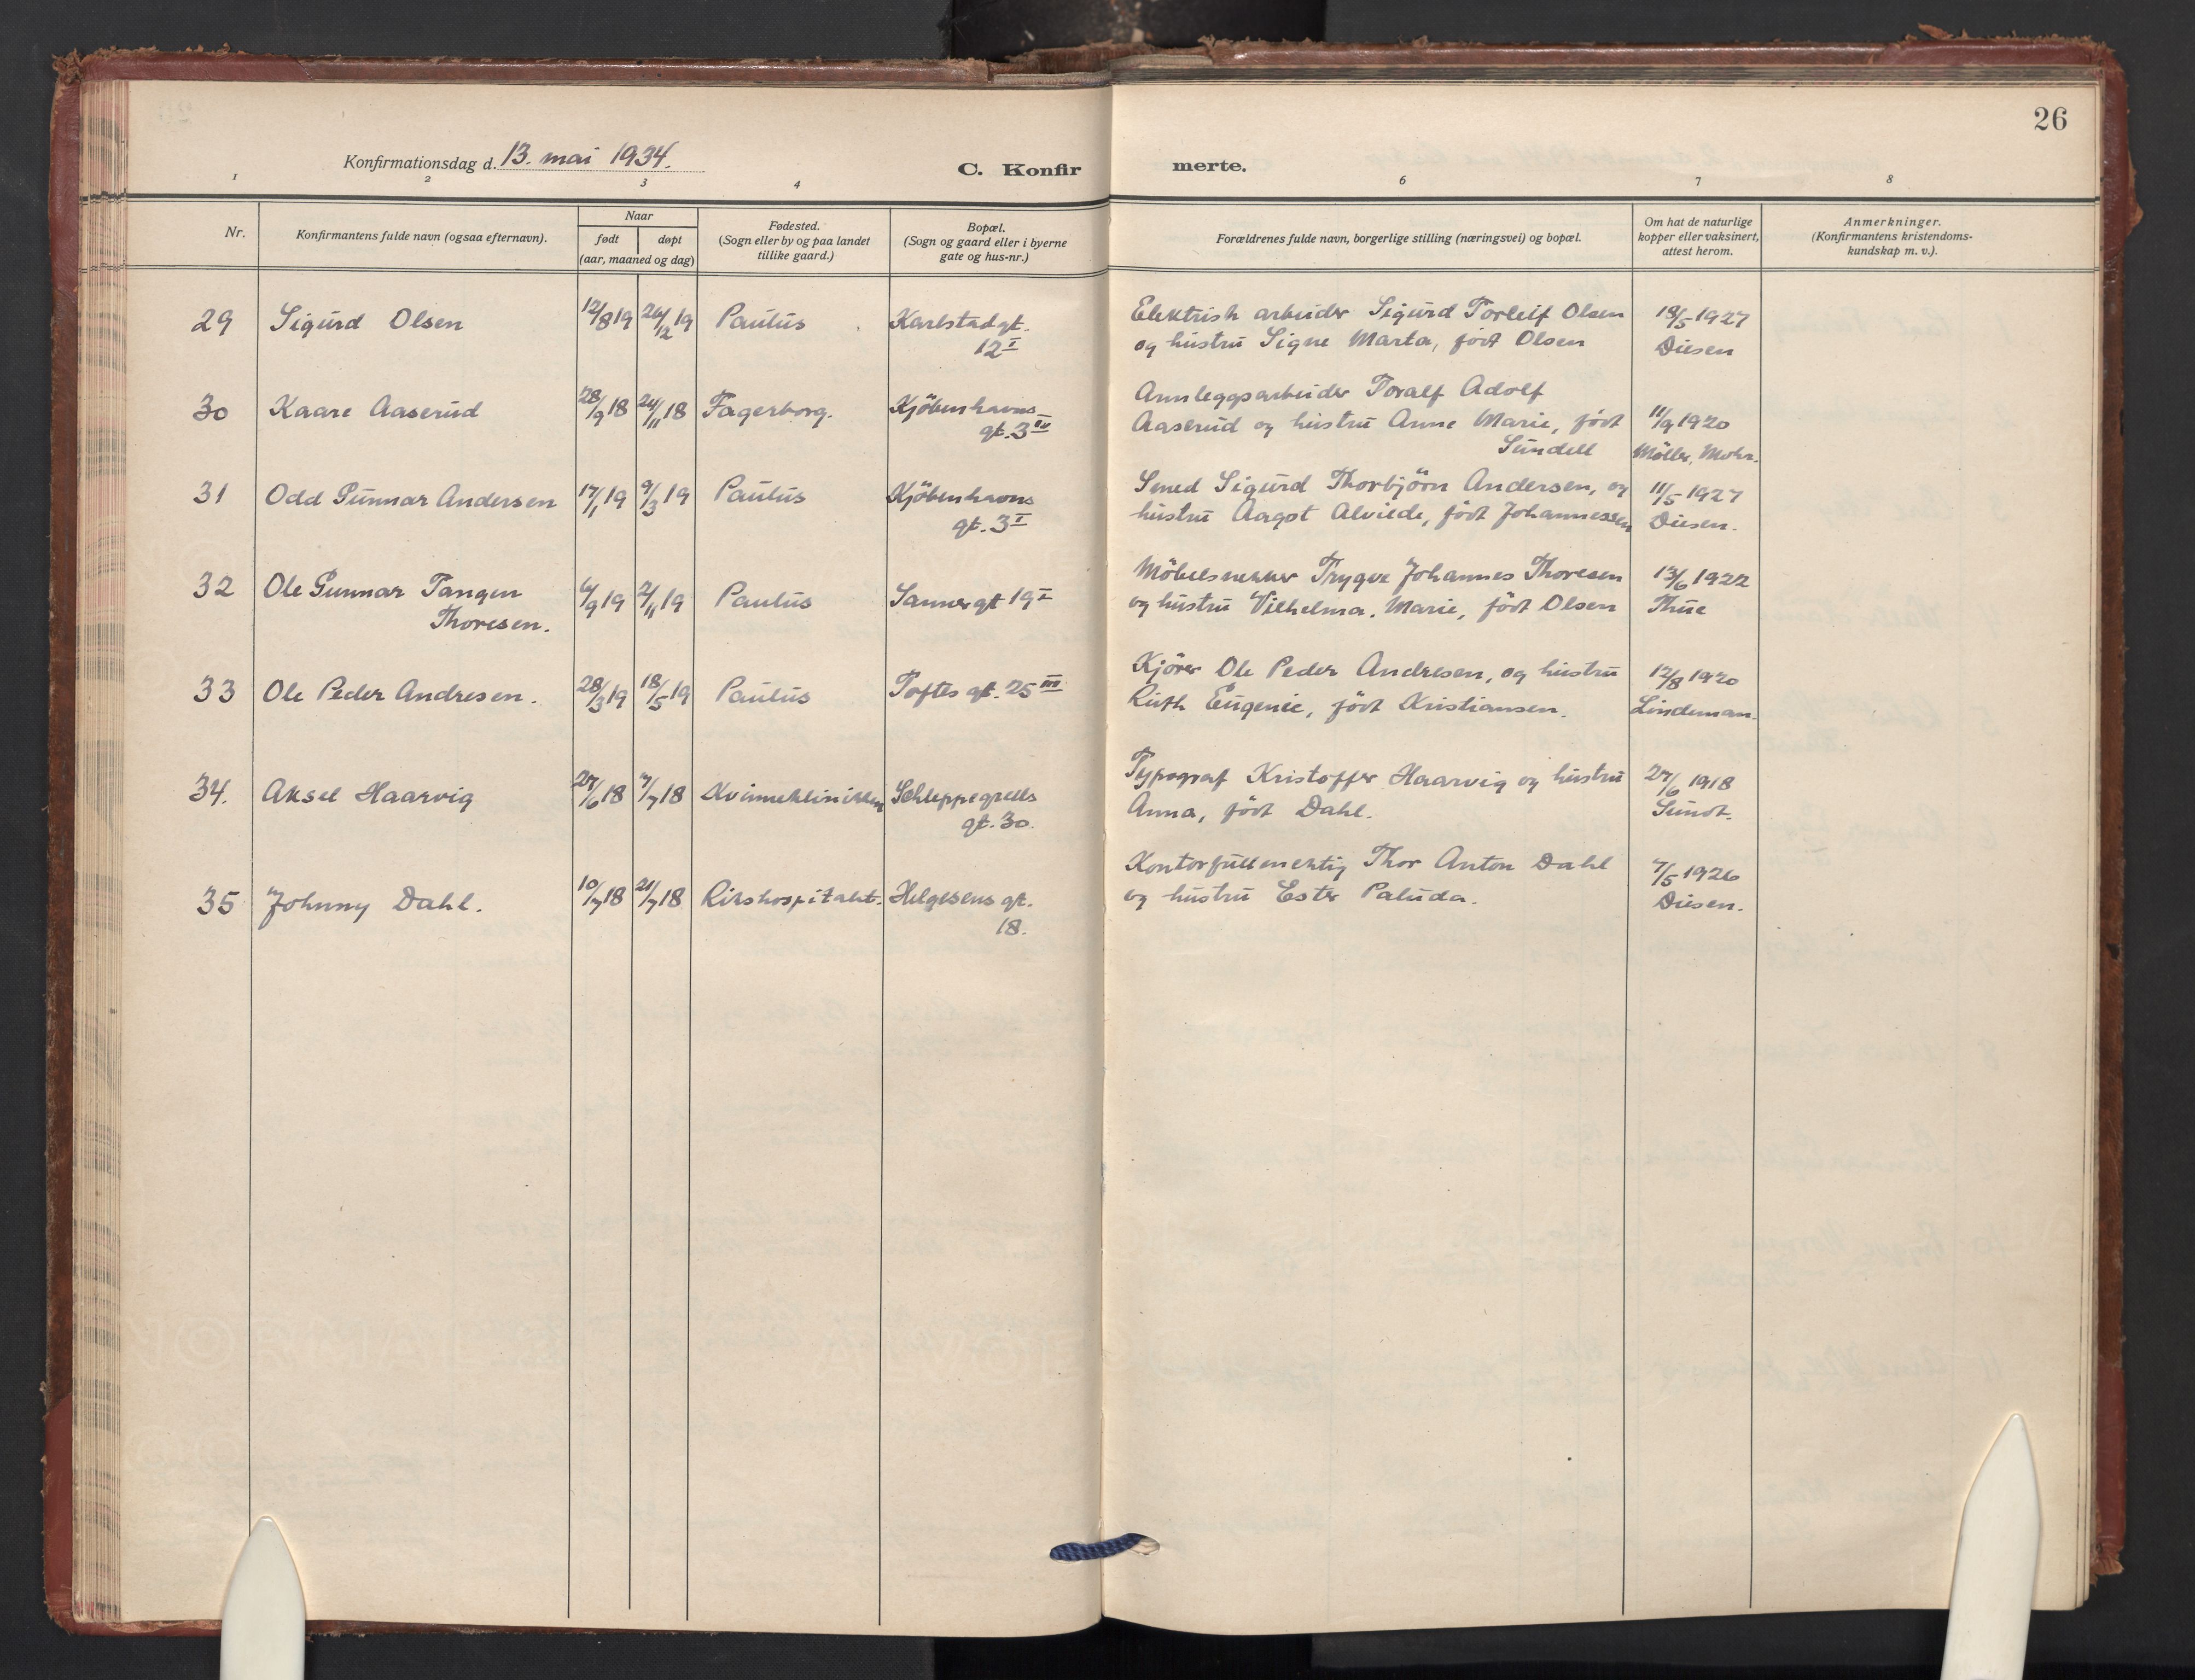 26
Konfirmationsdag d. 13. mai 1934.
C. Konfirmerte.
1 2 3 4 6 7 8
Nr.
Konfirmantens fulde navn (ogsaa efternavn).
Naar
født døpt
(aar, maaned og dag)
Fødested.
(Sogn eller by og paa landet
tillike gaard.)
Bopæl.
(Sogn og gaard eller i byerne
gate og hus-nr.)
Forældrenes fulde navn, borgerlige stilling (næringsvei) og bopæl.
Om hat de naturlige
kopper eller vaksinert,
attest herom.
Anmerkninger.
(Konfirmantens kristendoms-
kundskap m. v.).
29 Sigurd Olsen 12/8 19 26/12 19 Paulus Karlstadgt.
12 I
Elektrisk arbeider Sigurd Torleif Olsen
og hustru Signe Marta, født Olsen
18/5 1927
Diesen
30 Kaare Aaserud 28/9 18 24/11 18 Fagerborg. Kjöbenhavns
gt. 3 IV
Annleggsarbeider Toralf Adolf
Aaserud og hustru Anne Marie, født
Sundell
11/9 1920
Möller, Mohr.
31 Odd Gunnar Andersen 17/1 19 9/3 19 Paulus Kjöbenhavns
gt. 3 I
Smed Sigurd Thorbjörn Andersen, og
hustru Aagot Alvilde, født Johannessen
11/5 1927
Diesen.
32 Ole Gunnar Tangen
Thoresen.
6/9 19 2/11 19 Paulus Sannergt 19 I
Möbelsnekker Trygve Johannes Thoresen
og hustru Vilhelma. Marie, født Olsen
13/6 1922
Thue
33 Ole Peder Andresen. 28/3 19 18/5 19 Paulus Toftes gt. 25 III
Kjörer Ole Peder Andresen, og hustru
Ruth Eugenie, født Kristiansen.
12/8 1920
Lindeman.
34. Aksel Haarvig 27/6 18 7/7 18 Kvinneklinikken Schleppegrells
gt. 30.
Typograf Kristoffer Haarvig og hustru
Anna, født Dahl.
27/6 1918
Sundt.
35 Johnny Dahl. 10/7 18 21/7 18 Rikshospitalet. Helgesens gt.
18.
Kontorfullmektig Thor Anton Dahl
og hustru Ester Paluda.
7/5 1926
Diesen.